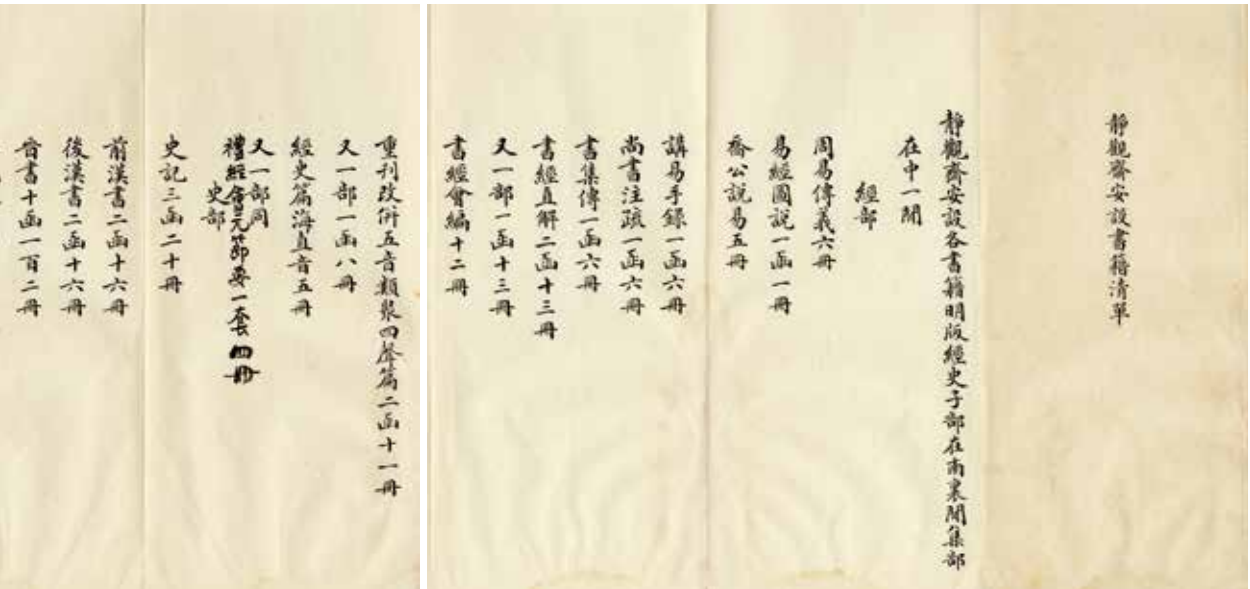 靜觀齋安設書籍清單
靜觀齋安設各書籍明版經史子部在南裏間集部
在中一間
經部
周易傳義六冊
易經圖說一函一冊
喬公說易五冊
講易手錄一函六冊
尚書注疏一函六冊
書集傳一函六冊
書經直解二函十三冊
又一部一函十三冊
書經會編十二冊
重刊改併五音類聚四聲篇二函十一冊
又一部一函八冊
經史篇海直音五冊
又一部同
禮經會元節要一套四冊
史部
史記三函二十冊
前漢書二函十六冊
後漢書二函十六冊
晉書十函一百二冊